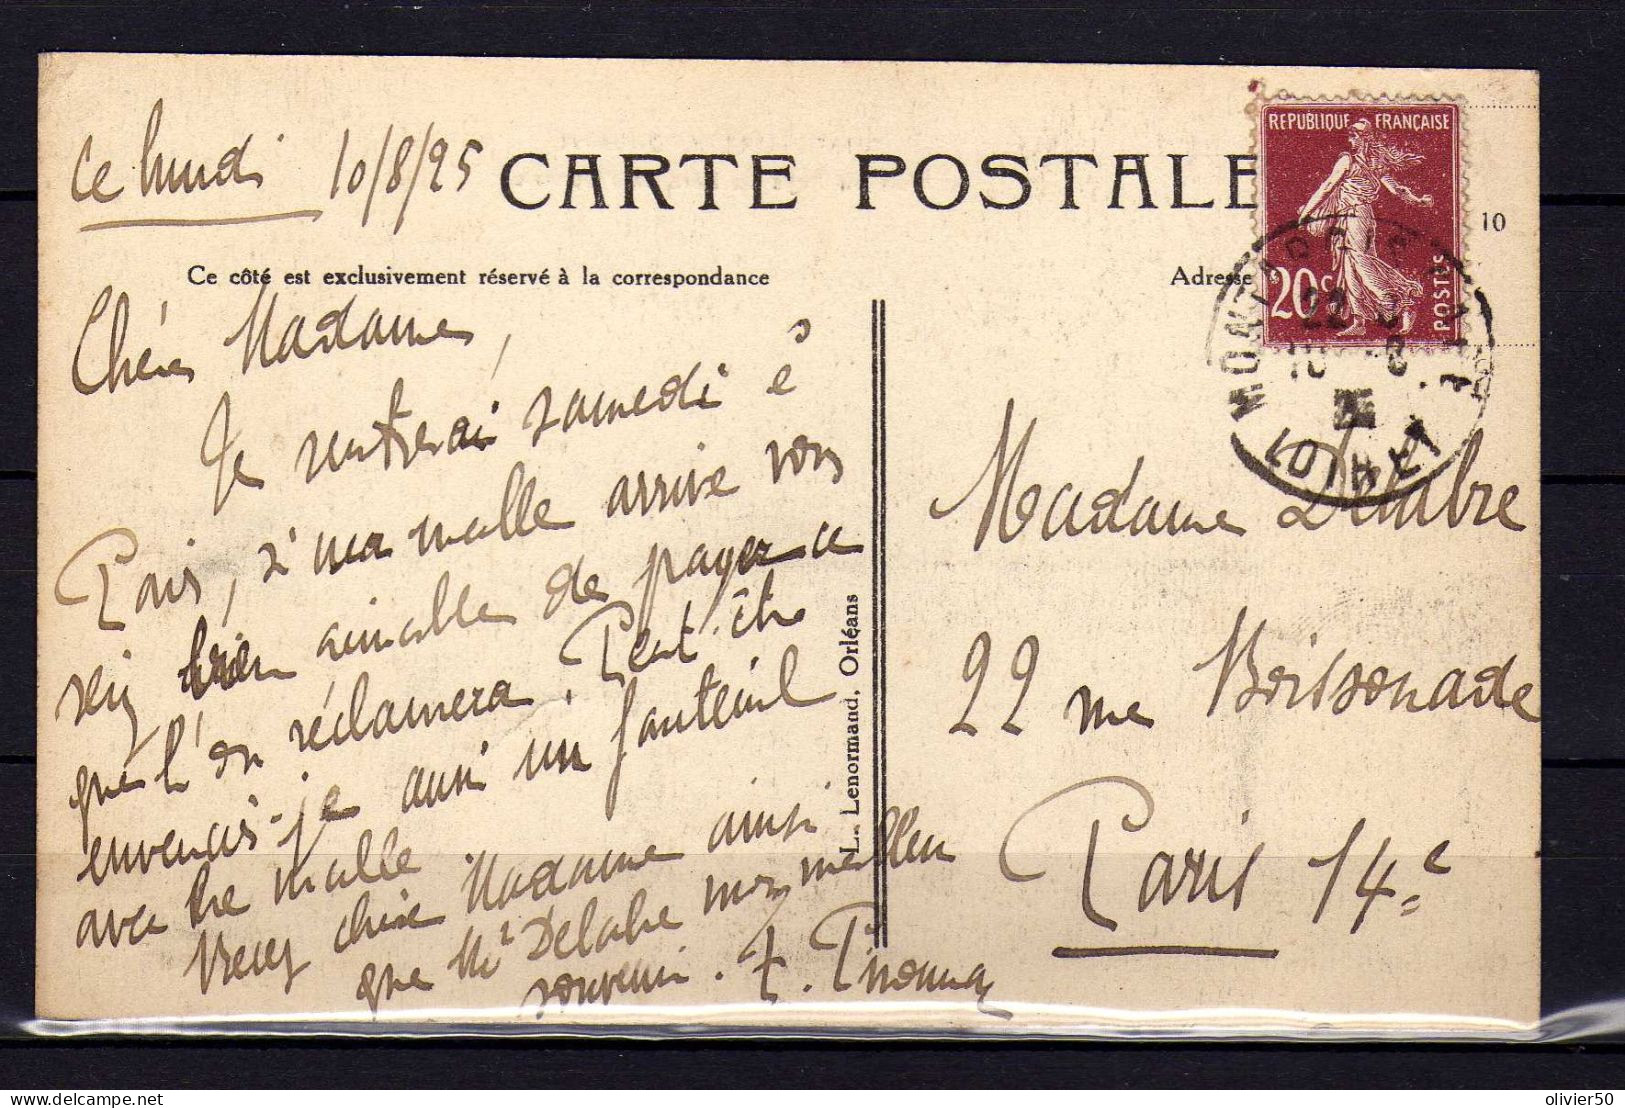 ce lundi 10/8/25
CARTE POSTALE
Ce côté est exclusivement réservé à la correspondance
Adresse
REPUBLIQUE FRANÇAISE
20c
POSTES
10
LOIRET
Chère Madame,
Je rentrerai samedi à
Paris, si ma malle arrive vous
serez bien aimable de payer ce
que l'on réclamera. Peut-être
enverrais-je aussi un fauteuil
avec the malle
Recevez chère Madame ainsi
que Mr Delabre mon meilleur
souvenir.
L. Lenormand, Orléans
Madame Delabre
22 rue Boissonade
Paris 14e
olivier50